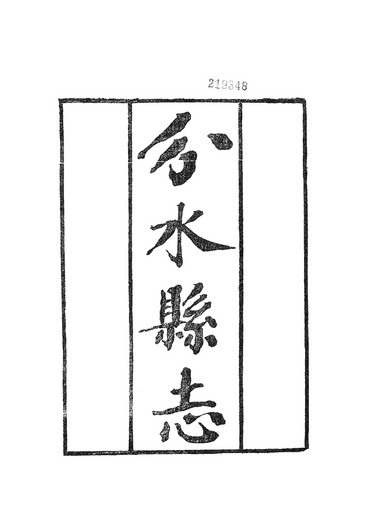 219848
分水縣志